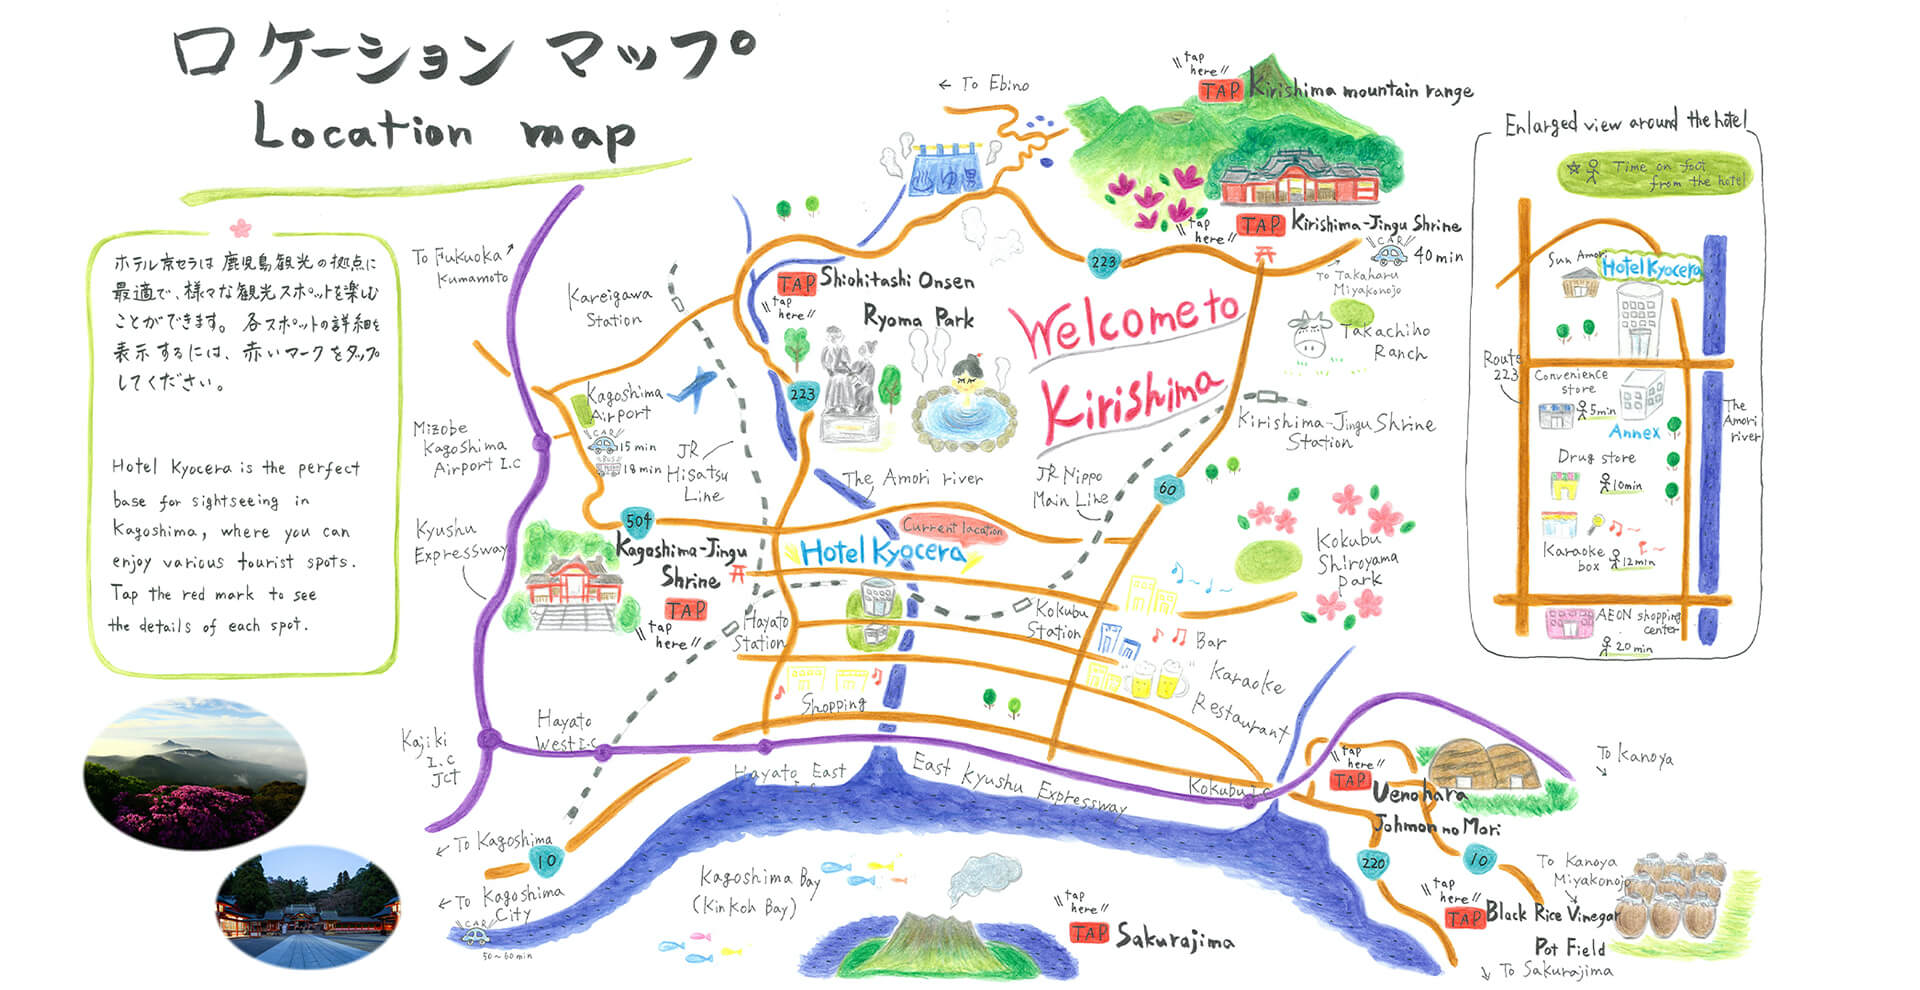 ロケーション マップ
Location map
ホテル京セラは鹿児島観光の拠点に
最適で、様々な観光スポットを楽しむ
ことができます。各スポットの詳細を
表示するには、赤いマークをタップ
してください。
Hotel Kyocera is the perfect
base for sightseeing in
Kagoshima, where you can
enjoy various tourist spots.
Tap the red mark to see
the details of each spot.
← To Ebino
tap
here
TAP Kirishima mountain range
tap
here
TAP Kirishima-Jingu Shrine
CAR
40min
To Takaharu
Miyakonojo
223
To Fukuoka
Kumamoto
Kareigawa
Station
TAP Shiohitashi Onsen
tap
here
Ryoma Park
223
Welcome to
Kirishima
Takachiho
Ranch
Kirishima-Jingu Shrine
Station
Kagoshima
Airport
CAR
15min
BUS
18min
Mizobe
Kagoshima
Airport I.C
JR
Hisatsu
Line
The Amori river
JR Nippo
Main Line
60
Kyushu
Expressway
504
Kagoshima-Jingu
Shrine
TAP
tap
here
Current location
Hotel Kyocera
Kokubu
Shiroyama
park
Hayato
Station
Kokubu
Station
Bar
Karaoke
Restaurant
Shopping
Kajiki
I.C
JCT
Hayato
West I.C
Hayato East
East Kyushu Expressway
Kokubu I.C
tap
here
TAP
Uenohara
Johmon no Mori
To Kanoya
← To Kagoshima
10
← To Kagoshima
City
CAR
50~60min
Kagoshima Bay
(Kinkoh Bay)
tap
here
TAP Sakurajima
220
10
To Kanoya
Miyakonojo
tap
here
TAP Black Rice Vinegar
Pot Field
To Sakurajima
Enlarged view around the hotel
Time on foot
from the hotel
Sun Amori
Hotel Kyocera
Route
223
Convenience
store
5min
Annex
The
Amori
river
Drug store
10min
Karaoke
box
12min
AEON shopping
center
20min